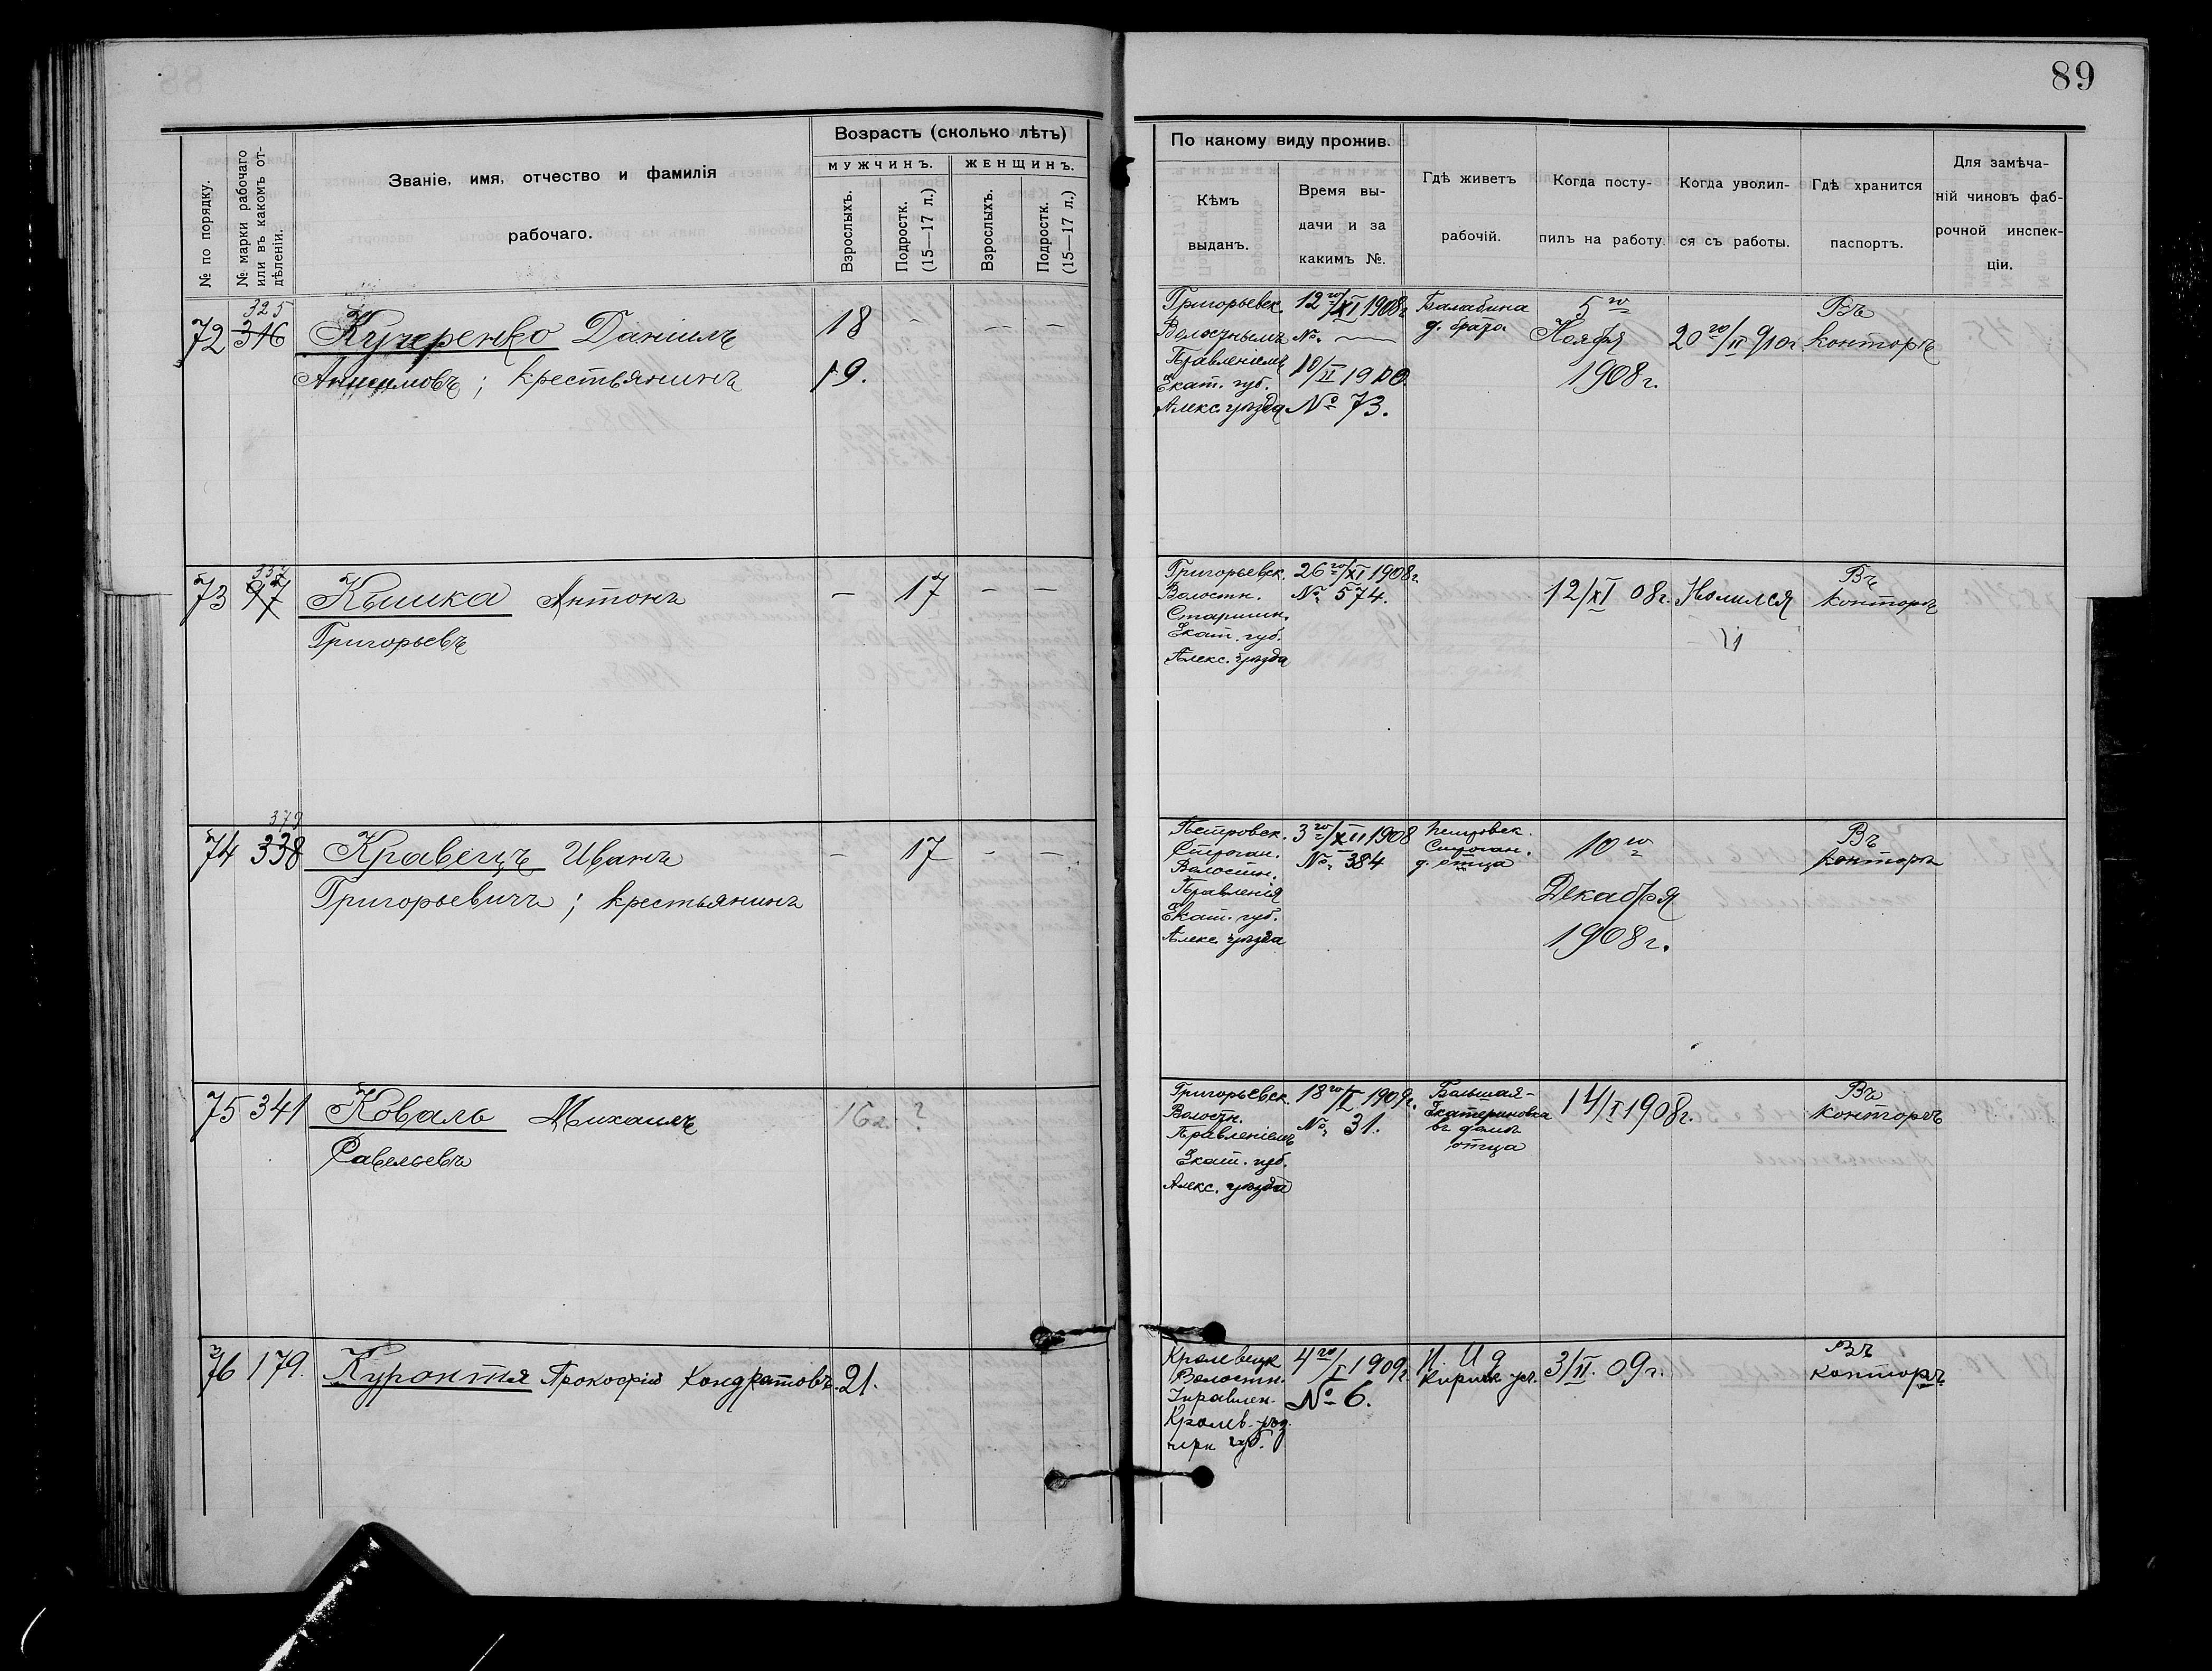 89
Возрастъ (сколько лѣтъ)
МУЖЧИНЪ. ЖЕНЩИНЪ.
№ по порядку.
№ марки рабочаго
или въ какомъ от-
дѣленіи.
Званіе, имя, отчество и фамилія
рабочаго.
Взрослыхъ.
Подростк.
(15—17 л.)
Взрослыхъ.
Подростк.
(15—17 л.)
По какому виду прожив.
Кѣмъ
выданъ.
Время вы-
дачи и за
какимъ №.
Гдѣ живетъ
рабочій.
Когда посту-
пилъ на работу.
Когда уволил-
ся съ работы.
Гдѣ хранится
паспортъ.
Для замѣча-
ній чиновъ фаб-
рочной инспек-
ціи.
325
72 316 Кучеренко Даніилъ 18 — — —
Анисимовъ; крестьянинъ 19.
Григорьевск.
Волостнымъ
Правленіемъ
Екат. губ.
Алекс. уѣзда
12го/XI 1908г
№ —
10/II 1910
№ 73.
Балабина
д. брата
5го
Ноября
1908г.
20го/II 910г.
Въ
конторѣ
337
73 97 Кышка Антонъ — 17 — —
Григорьевъ
Григорьевск.
Волостн.
Старшин.
Екат. губ.
Алекс. уѣзда
26го/XI 1908г.
№ 574.
12/XI 08г.
Въ
конторѣ
379
74 338 Кравецъ Иванъ — 17 — —
Григорьевичъ; крестьянинъ
Петровск.
Строган.
Волостн.
Правленія
Екат. губ.
Алекс. уѣзда
3го/XII 1908
№ 384
Петровск.
Строган.
д. отца
10го
Декабря
1908г.
Въ
конторѣ
75 341 Коваль Михаилъ 16г. ?
Савельевъ
Григорьевск.
Волостн.
Правленіемъ
Екат. губ.
Алекс. уѣзда
18го/I 1909г.
№ 31.
Большая-
Екатериновка
въ домѣ
отца
14/I 1908г.
Въ
конторѣ
76 179. Куроктя Прокофій Кондратовъ. 21.
Кролевецк
Волостн.
Управлен.
Кролев. уѣзд.
черн губ.
4го/I 1909г.
№ 6.
3/II. 09г.
Въ
конторѣ